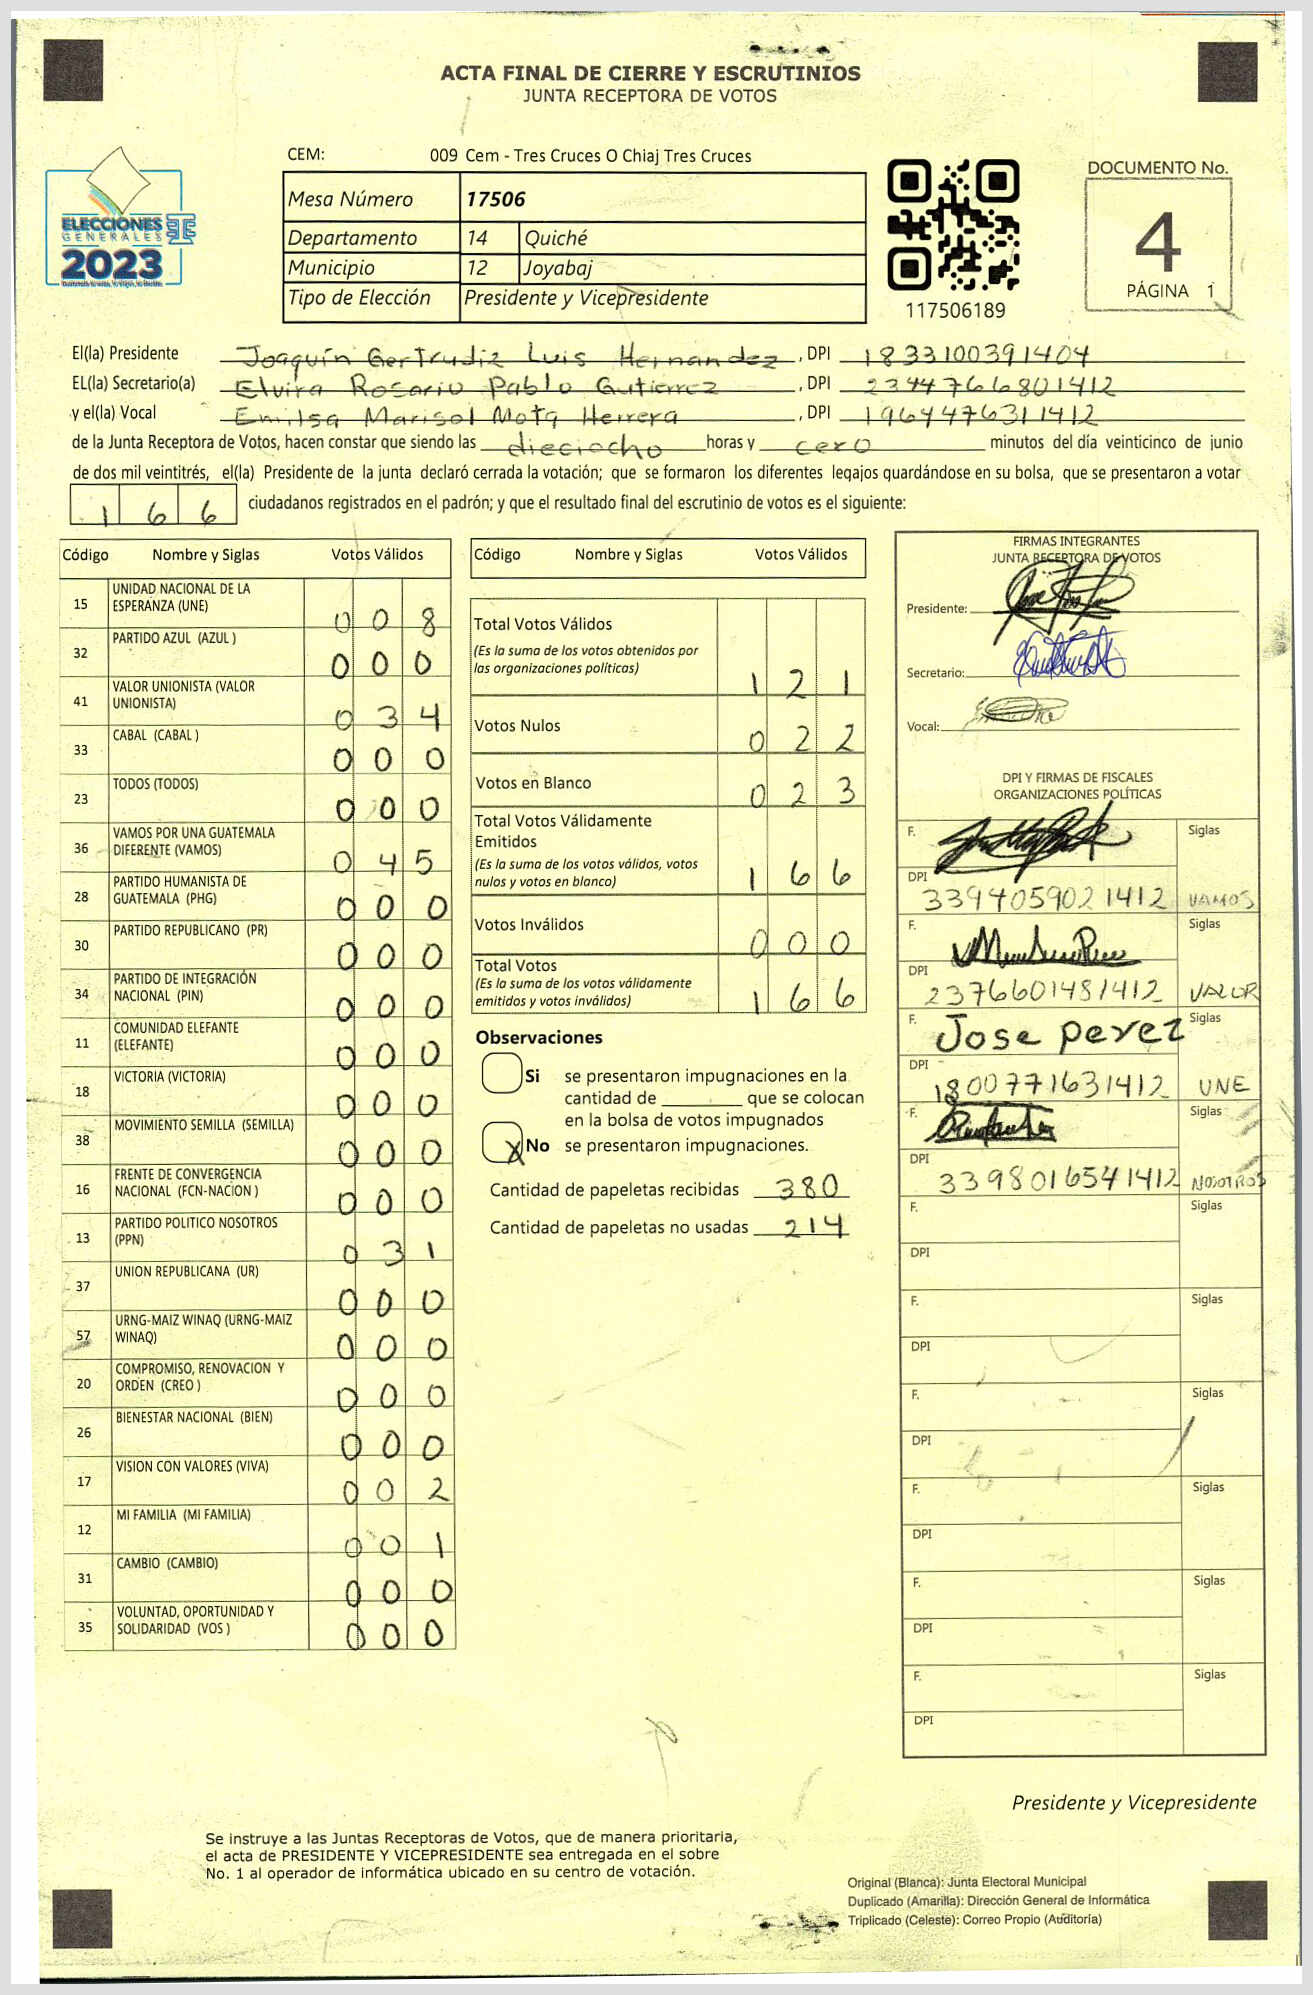 ACTA FINAL DE CIERRE Y ESCRUTINIOS
JUNTA RECEPTORA DE VOTOS
CEM: 009 Cem - Tres Cruces O Chiaj Tres Cruces
ELECCIONES
GENERALES
2023
Mesa Número 17506
Departamento 14 Quiché
Municipio 12 Joyabaj
Tipo de Elección Presidente y Vicepresidente
117506189
DOCUMENTO No.
4
PÁGINA 1
El(la) Presidente Joaquín Gertrudiz Luis Hernandez, DPI 1833100391404
EL(la) Secretario(a) Elvira Rosario Pablo Gutierrez, DPI 2344766801412
y el(la) Vocal Emilsa Marisol Mota Herrera, DPI 1964476311412
de la Junta Receptora de Votos, hacen constar que siendo las dieciocho horas y cero minutos del día veinticinco de junio
de dos mil veintitrés, el(la) Presidente de la junta declaró cerrada la votación; que se formaron los diferentes legajos quardándose en su bolsa, que se presentaron a votar
166 ciudadanos registrados en el padrón; y que el resultado final del escrutinio de votos es el siguiente:
Código Nombre y Siglas Votos Válidos
15 UNIDAD NACIONAL DE LA
ESPERANZA (UNE) 008
32 PARTIDO AZUL (AZUL ) 000
41 VALOR UNIONISTA (VALOR
UNIONISTA) 034
33 CABAL (CABAL ) 000
23 TODOS (TODOS) 000
36 VAMOS POR UNA GUATEMALA
DIFERENTE (VAMOS) 045
28 PARTIDO HUMANISTA DE
GUATEMALA (PHG) 000
30 PARTIDO REPUBLICANO (PR) 000
34 PARTIDO DE INTEGRACIÓN
NACIONAL (PIN) 000
11 COMUNIDAD ELEFANTE
(ELEFANTE) 000
18 VICTORIA (VICTORIA) 000
38 MOVIMIENTO SEMILLA (SEMILLA) 000
16 FRENTE DE CONVERGENCIA
NACIONAL (FCN-NACION ) 000
13 PARTIDO POLITICO NOSOTROS
(PPN) 031
37 UNION REPUBLICANA (UR) 000
57 URNG-MAIZ WINAQ (URNG-MAIZ
WINAQ) 000
20 COMPROMISO, RENOVACION Y
ORDEN (CREO ) 000
26 BIENESTAR NACIONAL (BIEN) 000
17 VISION CON VALORES (VIVA) 002
12 MI FAMILIA (MI FAMILIA) 001
31 CAMBIO (CAMBIO) 000
35 VOLUNTAD, OPORTUNIDAD Y
SOLIDARIDAD (VOS ) 000
Código Nombre y Siglas Votos Válidos
Total Votos Válidos
(Es la suma de los votos obtenidos por
las organizaciones políticas) 121
Votos Nulos 022
Votos en Blanco 023
Total Votos Válidamente
Emitidos
(Es la suma de los votos válidos, votos
nulos y votos en blanco) 166
Votos Inválidos 000
Total Votos
(Es la suma de los votos válidamente
emitidos y votos inválidos) 166
Observaciones
Si se presentaron impugnaciones en la
cantidad de ________ que se colocan
en la bolsa de votos impugnados
X No se presentaron impugnaciones.
Cantidad de papeletas recibidas 380
Cantidad de papeletas no usadas 214
FIRMAS INTEGRANTES
JUNTA RECEPTORA DE VOTOS
Presidente:
Secretario:
Vocal:
DPI Y FIRMAS DE FISCALES
ORGANIZACIONES POLÍTICAS
F. Siglas
DPI
3394059021412 VAMOS
F. Siglas
DPI
2376601481412 VALOR
F. Jose perez Siglas
DPI
1800771631412 UNE
F. Siglas
DPI
3398016541412 NOSOTROS
F. Siglas
DPI
F. Siglas
DPI
F. Siglas
DPI
F. Siglas
DPI
F. Siglas
DPI
F. Siglas
DPI
Presidente y Vicepresidente
Se instruye a las Juntas Receptoras de Votos, que de manera prioritaria,
el acta de PRESIDENTE Y VICEPRESIDENTE sea entregada en el sobre
No. 1 al operador de informática ubicado en su centro de votación.
Original (Blanca): Junta Electoral Municipal
Duplicado (Amarilla): Dirección General de Informática
Triplicado (Celeste): Correo Propio (Auditoría)